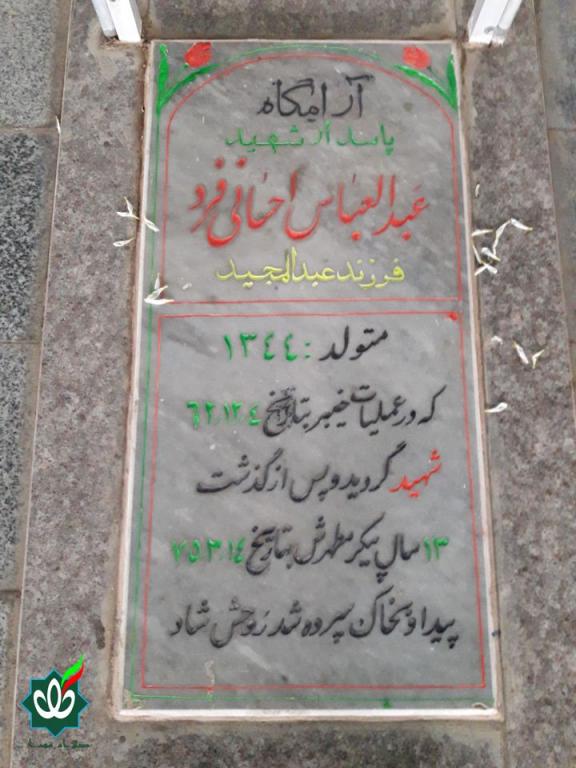 آرامگاه
پاسدار شهید
عبدالعباس احسانی فرد
فرزند عبدالمجید
متولد : ١٣٤٤
که در عملیات خیبر بتاریخ ٦٢،١٢،٤
شهید گردید و پس از گذشت
١٣ سال پیکر مطهرش بتاریخ ٧٥،٣،١٤
پیدا و بخاک سپرده شد روحش شاد